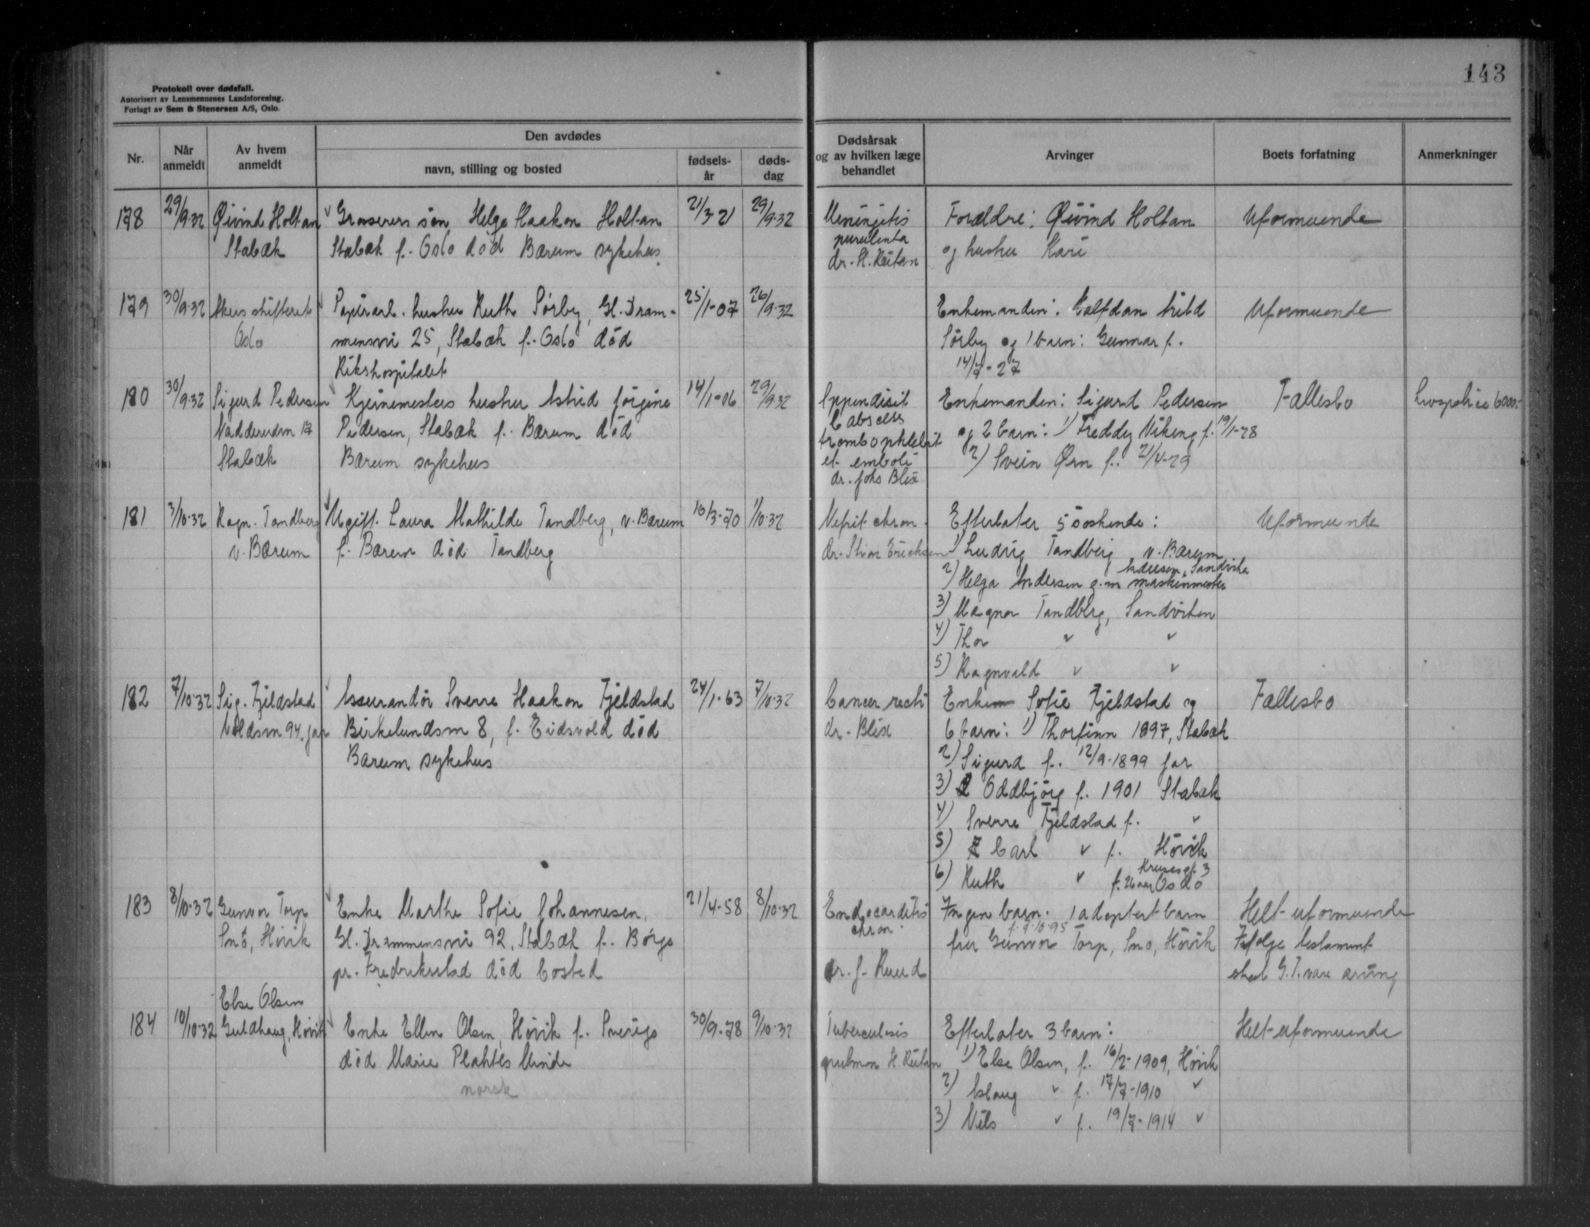 143
Protokoll over dødsfall.
Autorisert av Lensmennenes Landsforening.
Forlagt av Sem & Stenersen A/S, Oslo.
Nr.
Når anmeldt
Av hvem anmeldt
Den avdødes
navn, stilling og bosted
fødsels-år
døds-dag
Dødsårsak og av hvilken læge behandlet
Arvinger
Boets forfatning
Anmerkninger
178 29/9.32 Øivind Holtan Grosserers søn, Helge Haakon Holtan 21/3-21 29/9.32 Meningitis Forældre: Øivind Holtan Uformuende
Stabæk Stabæk f. Oslo død Bærum sykehus. purulenta og hustru Kari
dr. H. Reitan
179 30/9.32 Akers skifterett Papirarb. hustru Ruth Sørby, Gl. Dram- 25/1-07 26/9.32 Enkemanden: Halfdan Uformuende
Oslo mensvei 25, Stabæk f. Oslo død Sørby og 1 barn: Gunnar f.
Rikshospitalet 14/7-27
180 30/9.32 Sigurd Pedersen hustru Astrid Jørgine 14/1-06 29/9.32 Appendisit Enkemanden: Sigurd Pedersen Fællesbo Livspolise 6000.-
Nadderudvn Pedersen, Stabæk f. Bærum død c absces og 2 barn: 1) Freddy Viking f. 19/1-28
Stabæk Bærum sykehus et emboli 2) Svein Ørn f. 2/4-29
dr. Johs Blix
181 3/10.32 Ragn. Tandberg Ugift. Laura Mathilde Tandberg, v. Bærum 16/3-70 1/10.32 Nefrit chron. Efterlater 5 søskende: Uformuende
v. Bærum f. Bærum død Tandberg dr. Stian Erichsen 1) Ludvig Tandberg v. Bærum
2) Helga Andersen g.m. maskinmester Andersen, Sandvika
3) Magna Tandberg, Sandviken
4) Thor " "
5) Ragnvald " "
182 7/10.32 Sig. Fjeldstad Assurandør Sverre Haakon Fjeldstad 24/1-63 7/10.32 Cancer recti Enkem Sofie Fjeldstad og Fællesbo
94, Jar Birkelundsvn 8, f. Eidsvold død dr. Blix 6 barn: 1) Thorfinn 1897, Stabæk
Bærum sykehus 2) Sigurd f. 12/9-1899 Jar
3) Oddbjørg f. 1901 Stabæk
4) Sverre Fjeldstad f. "
5) Carl " f. Høvik
6) Ruth " f. Oslo
183 8/10.32 Gunvor Torp Enke Marthe Sofie Johannesen, 21/4-58 8/10.32 Endocarditis Ingen barn. 1 adoptert barn Helt uformuende
Snö, Høvik Gl. Drammensvei 92, Stabæk f. Borge chron. fru Gunvor Torp, Snö, Høvik Ifølge testament
pr. Fredrikstad død bosted dr. J. Ruud skal G.T. være arving
Else Olsen
184 10/10.32 Guldhaug, Høvik Enke Ellen Olsen, Høvik f. Sverige 30/9-78 9/10.32 Tuberculosis Efterlater 3 barn: Helt uformuende
død Marie Plahtes Minde pulmon H. Reitan 1) Else Olsen, f. 16/2-1909, Høvik
norsk 2) Aslaug " f. 17/7-1910 "
3) Nils " f. 19/7-1914 "